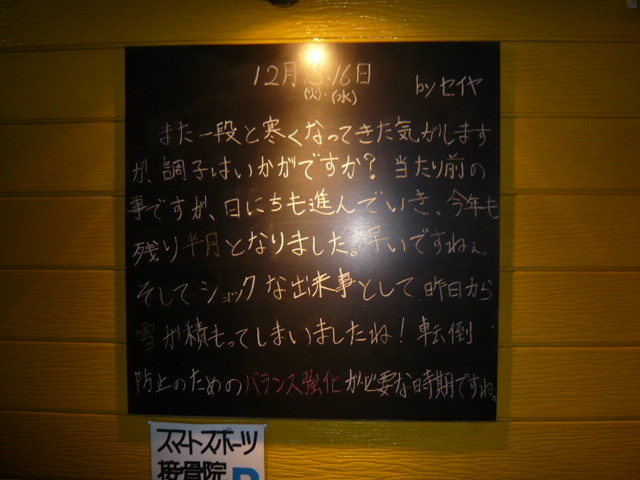 12月15・16日
(火)・(水)
byセイヤ
また一段と寒くなってきた気がします
が、調子はいかがですか？当たり前の
事ですが、日にちも進んでいき、今年も
残り半月となりました。早いですねぇ。
そして、ショックな出来事として、昨日から
雪が積もってしまいましたね！転倒
防止のためのバランス強化が必要な時期ですね。
スマートスポーツ
接骨院
P